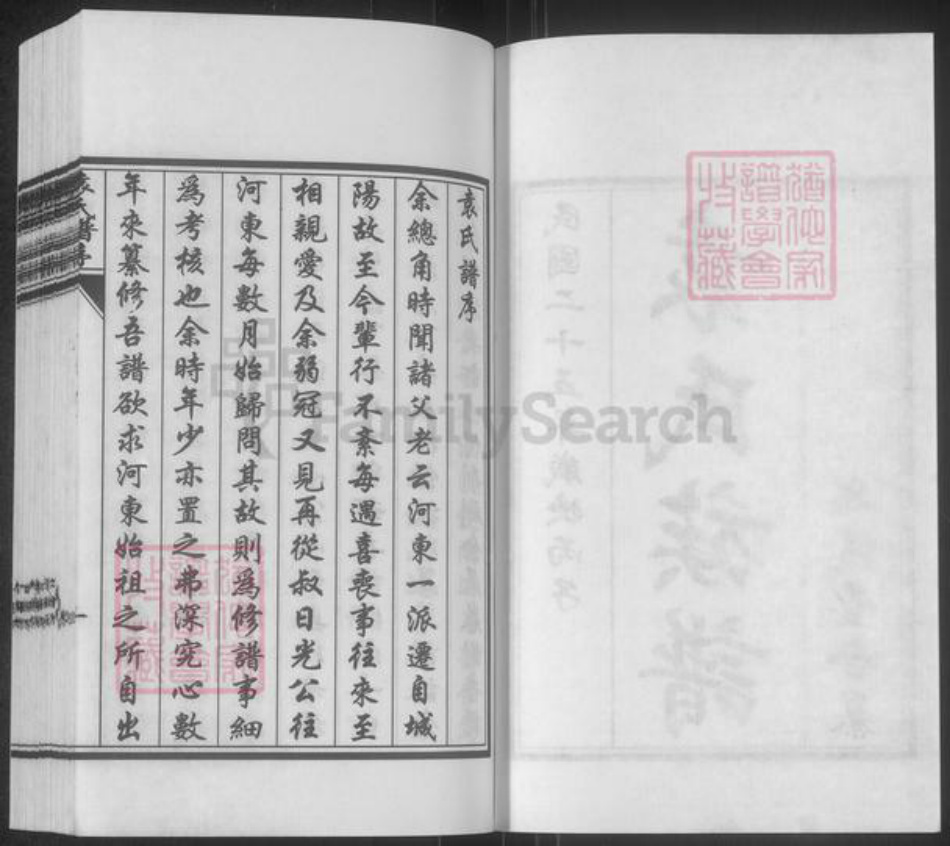 袁氏譜序
余總角時聞諸父老云河東一派遷自城
陽故至今輩行不紊每遇喜喪事往來至
相親愛及余弱冠又見再從叔日光公往
河東每數月始歸問其故則為修譜事細
為考核也余時年少亦置之弗深究心數
年來纂修吾譜欲求河東始祖之所自出
袁氏譜序
譜學會
收藏
FamilySearch